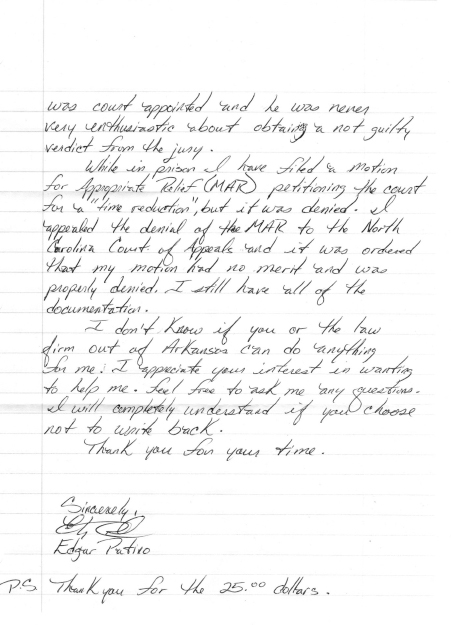 was court appointed and he was never
very enthusiastic about obtaing a not guilty
verdict from the jury.
While in prison I have filed a motion
for Appropriate Relief (MAR) petitioning the court
for a "time reduction", but it was denied. I
appealed the denial of the MAR to the North
Carolina Court of Appeals and it was ordered
that my motion had no merit and was
properly denied. I still have all of the
documentation.
I don't know if you or the law
firm out of Arkansas can do anything
for me. I appreciate your interest in wanting
to help me. Feel free to ask me any questions.
I will completely understand if you choose
not to write back.
Thank you for your time.
Sincerely,
Edgar Patino
P.S. Thank you for the 25.00 dollars.